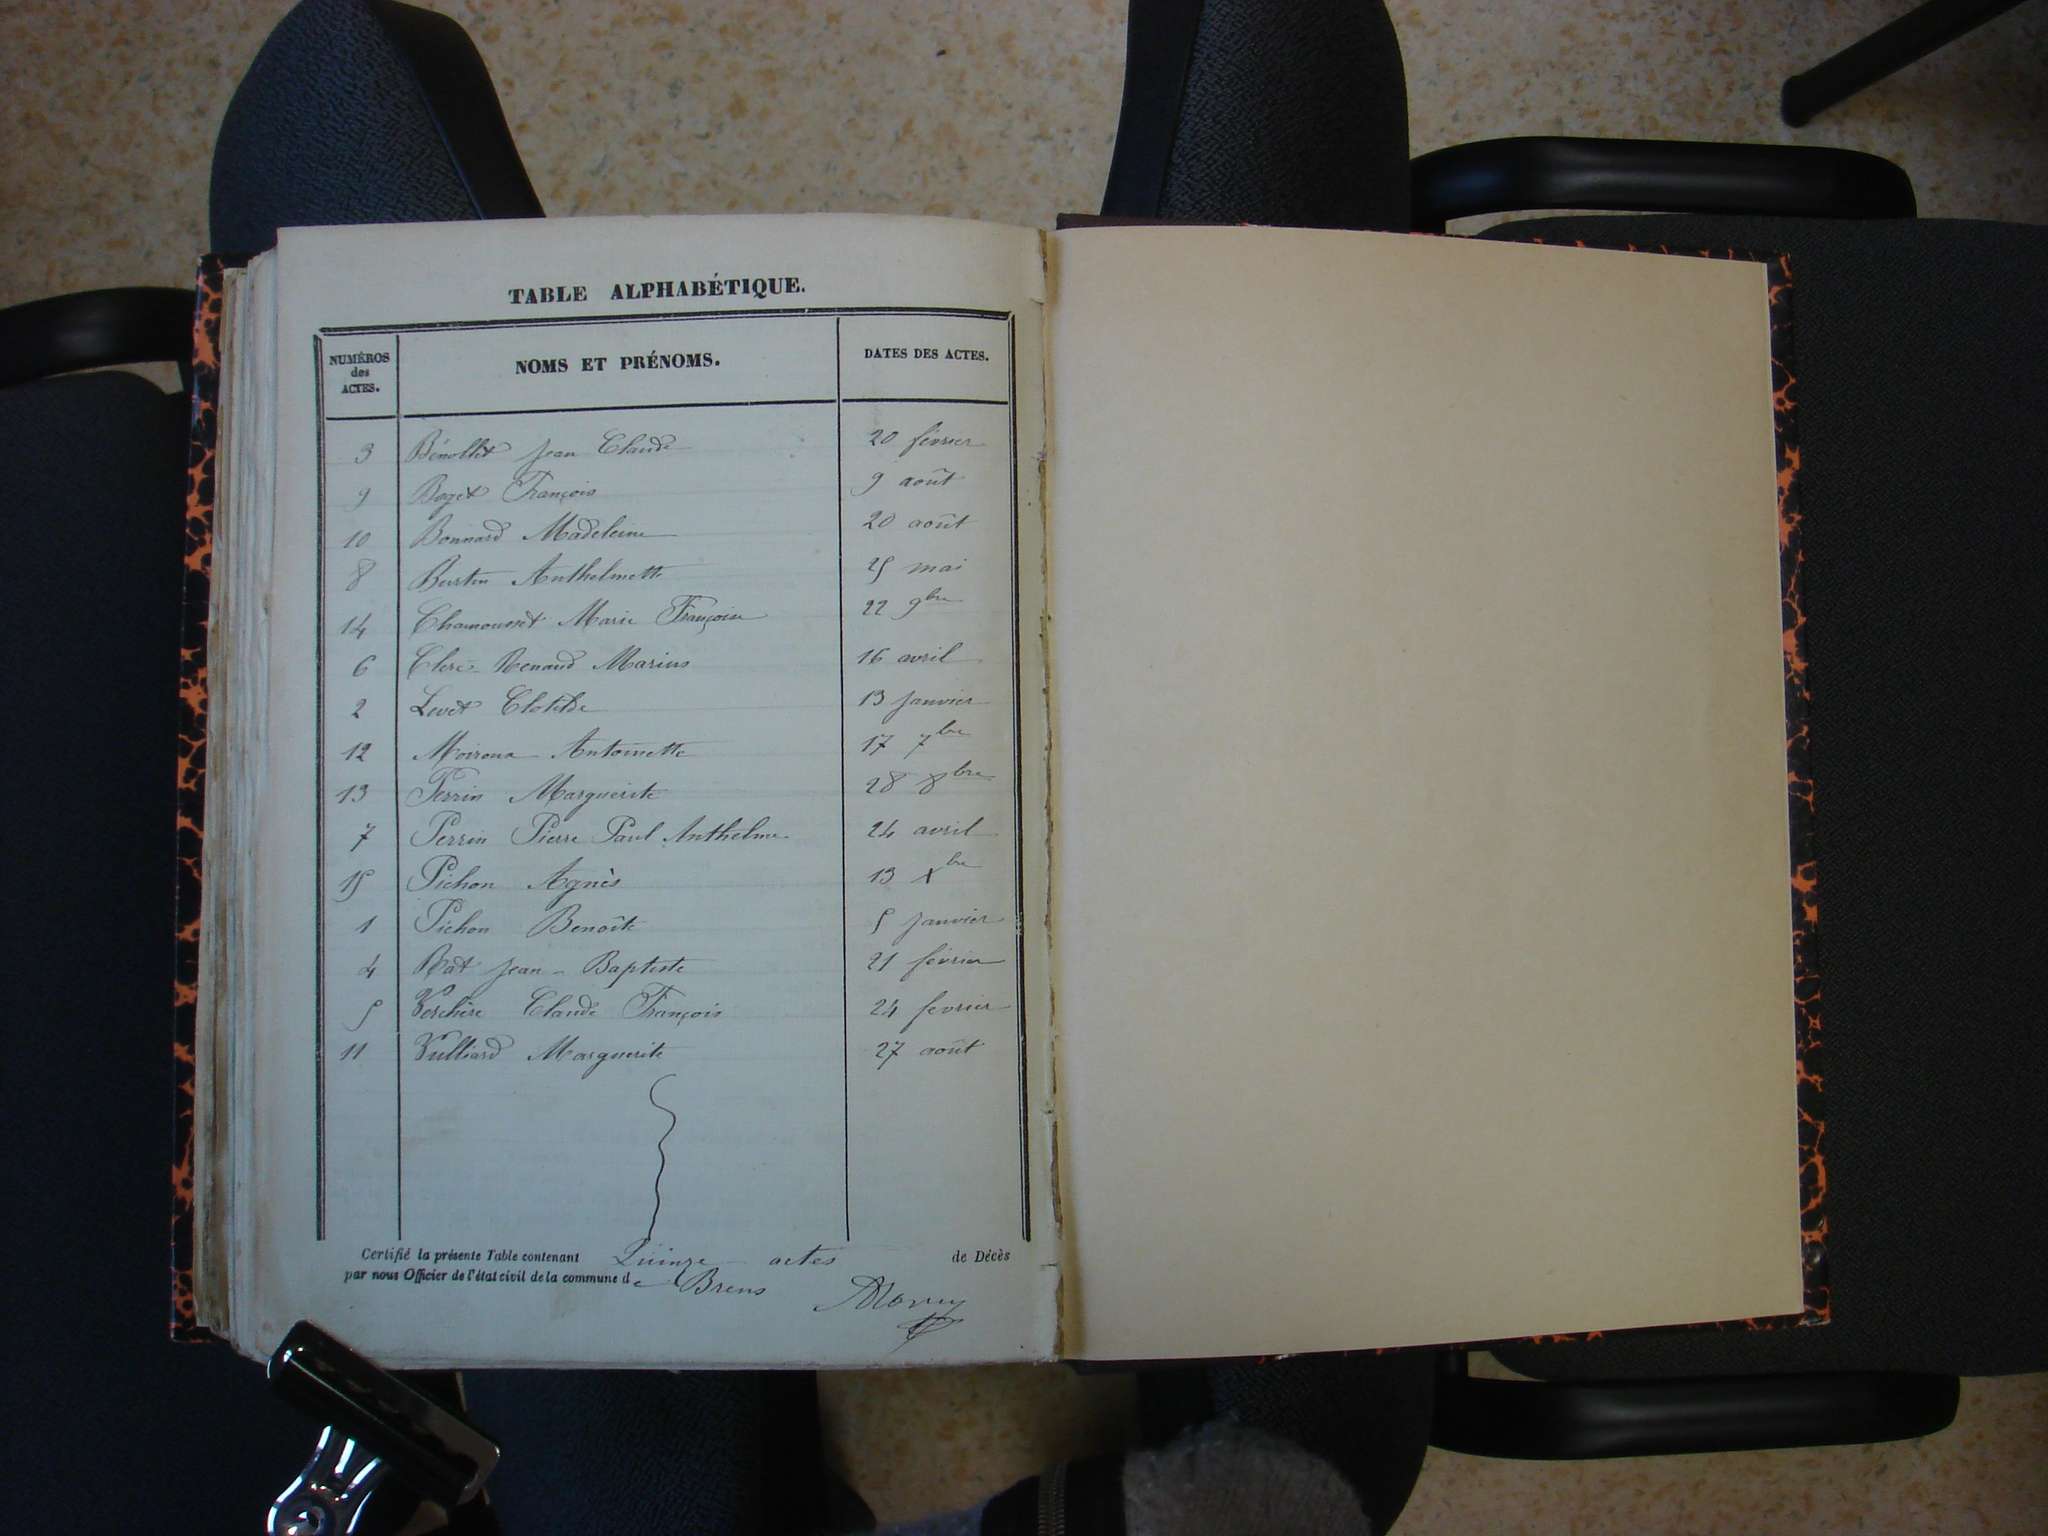 TABLE ALPHABÉTIQUE.
NUMÉROS des ACTES. NOMS ET PRÉNOMS. DATES DES ACTES.
3 Bénollet Jean Claude 20 février
9 Boget François 9 août
10 Bonnard Madeleine 20 août
8 Burtin Anthelmette 25 mai
14 Chamousset Marie Françoise 22 9bre
6 Clerc-Renaud Marius 16 avril
2 Levet Clotilde 13 janvier
12 Moiroux Antoinette 17 7bre
13 Perrin Marguerite 28 8bre
7 Perrin Pierre Paul Anthelme 24 avril
15 Pichon Agnès 13 Xbre
1 Pichon Benoîte 5 janvier
4 Rat Jean-Baptiste 21 février
5 Verchère Claude François 24 fevrier
11 Vulliard Marguerite 27 août
Certifié la présente Table contenant Quinze actes de Décès
par nous Officier de l'état civil de la commune de Brens